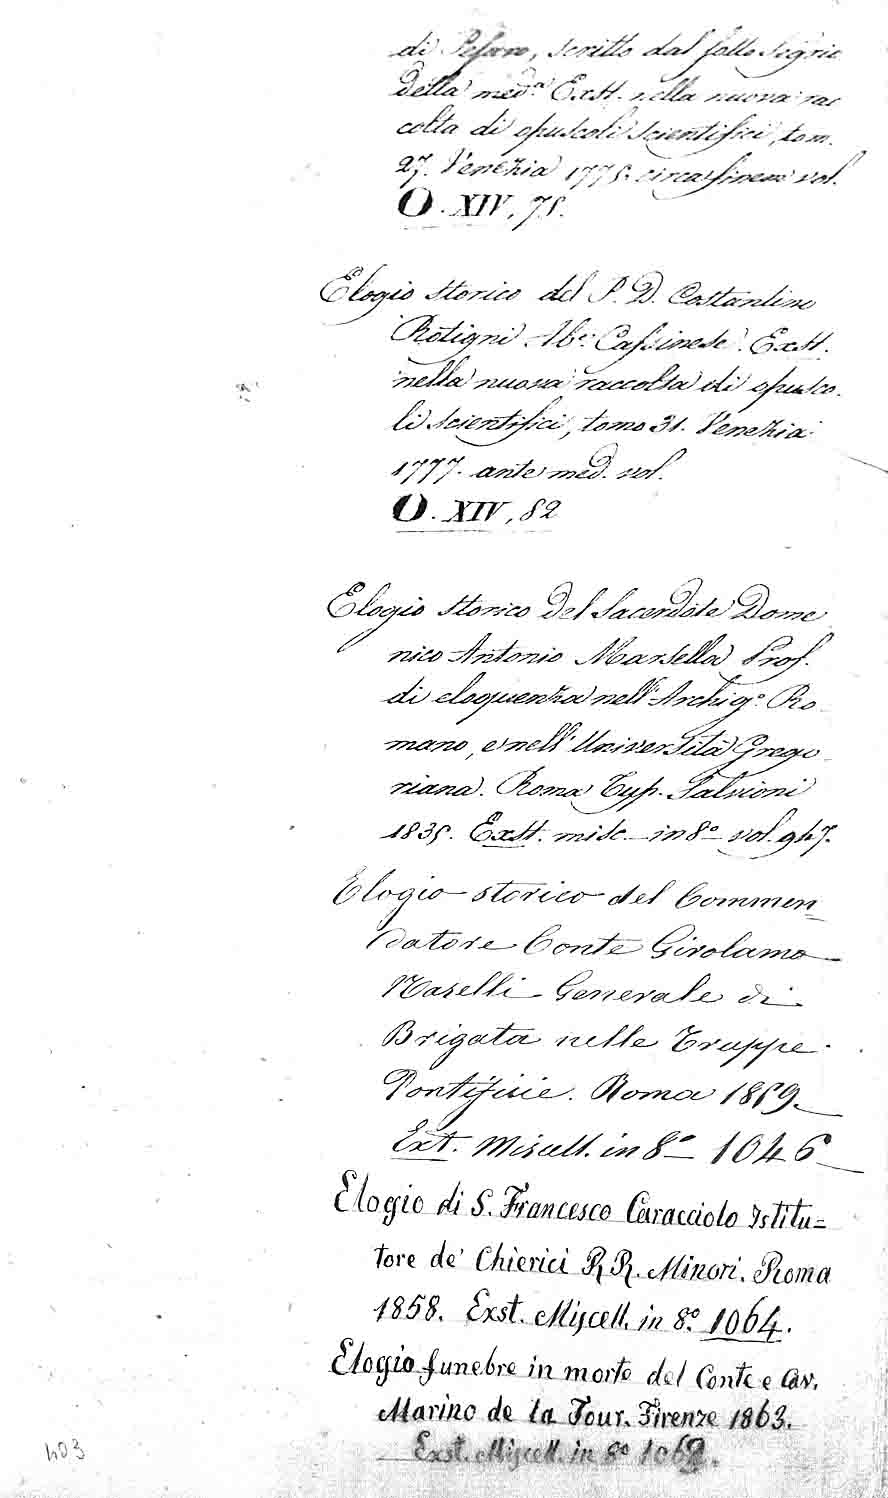 di Pesaro, scritto dal sollo segrio
della med.ª Exst. nella nuova rac
colta di opuscoli scientifici, tom.
27. Venezia 1775. circa finem vol.
O. XIV, 75.
Elogio storico del P. D. Costantino
Rotigni Ab.e Cassinese. Exst.
nella nuova raccolta di opusco-
li scientifici, tomo 31. Venezia
1777. ante med. vol.
O. XIV, 82
Elogio storico del Sacerdote Dome
nico Antonio Marsella Prof.
di eloquenza nell'Archig.º Ro
mano, e nell'Università Grego
riana. Roma Typ. Salvioni
1835. Exst. misc. in 8º vol. 947.
Elogio storico del Commen=
datore Conte Girolamo
Naselli Generale di
Brigata nelle Truppe
Pontificie. Roma 1859.
Ext. Miscell. in 8º 1046
Elogio di S. Francesco Caracciolo Istitu=
tore de' Chierici R R. Minori. Roma
1858. Exst. Miscell. in 8º. 1064.
Elogio funebre in morte del Conte e Cav.
Marino de la Tour. Firenze 1863.
Exst. Miscell. in 8º 1062.
403